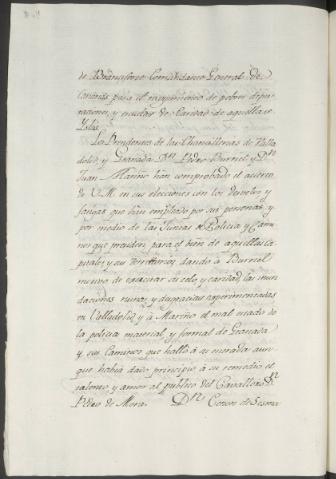 de Branciforte Comandante General de
Canarias para el recogimiento de pobres diputaciones, y
ciones, y caudal de Caridad de aquellas
Yslas.
Los Presidentes de las Chancillerias de Valla
dolid, y Granada Dn. Pedro Burriel, y Dn.
Juan Mariño han comprobado el acierto
de V.M. en sus elecciones con los desvelos y
fatigas que han empleado por sus personas, y
por medio de las Juntas de Policía y Cami
nos que presiden, para el bien de aquellas Ca
pitales, y sus territorios, dando á Burriel
motivo de exercitar su zelo, y caridad las inun
daciones, ruinas, y desgracias experimentadas
en Valladolid, y á Mariño el mal estado de
la policia material, y formal de Granada
y sus Caminos que halló á su entrada aun
que había dado principio á su remedio el
talento, y amor al publico del Cavallero Dn.
Pedro de Mora.
Dn.